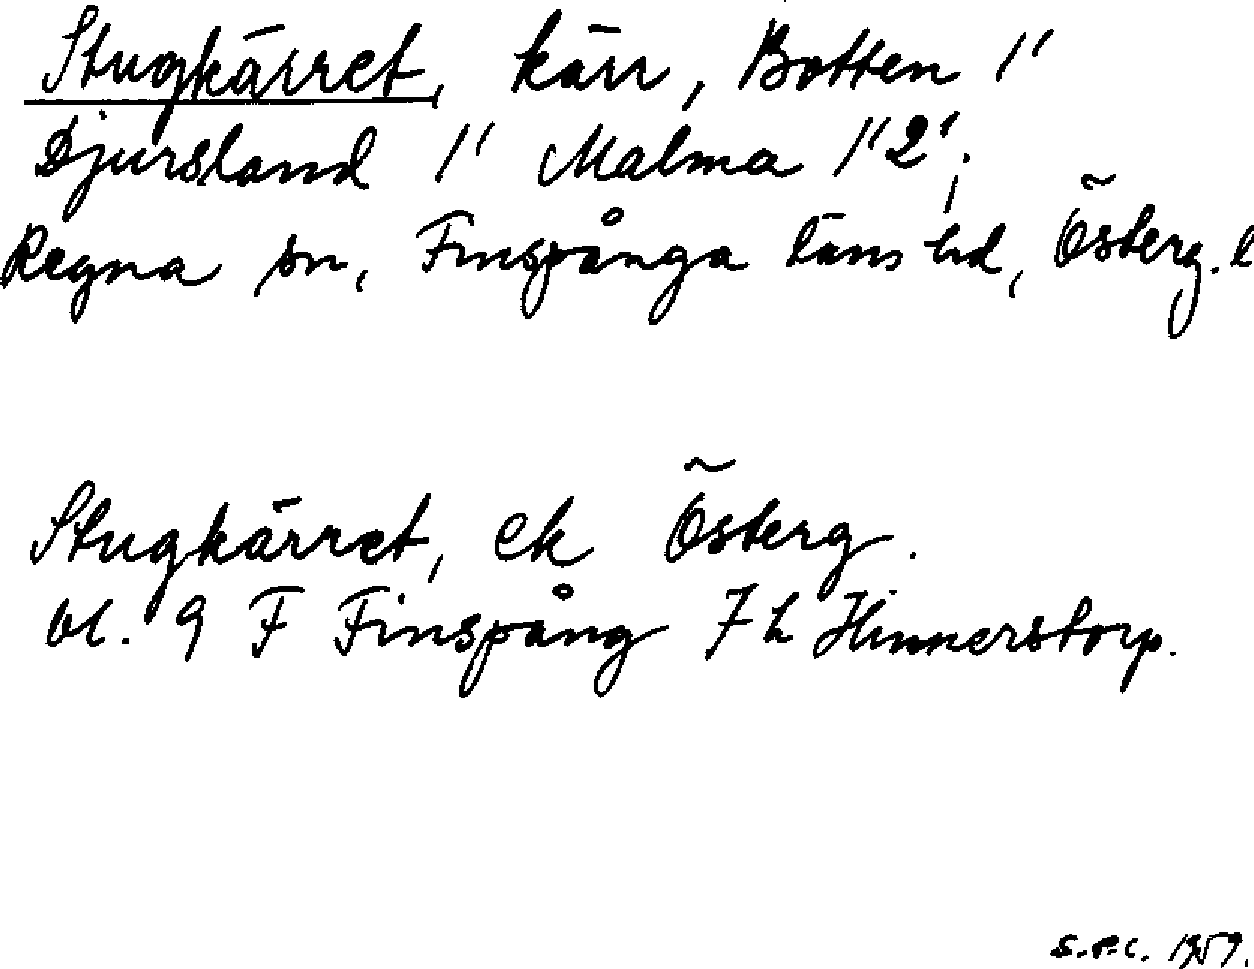 Stugkärret, kärr, Botten 1'
Djursland 1' Malma 1'2';
Regna sn, Finspånga läns hd, Österg. l
Stugkärret, ek Österg.
bl. 9 F Finspång 7 h Hinnerstorp.
S.P.C. 1959.